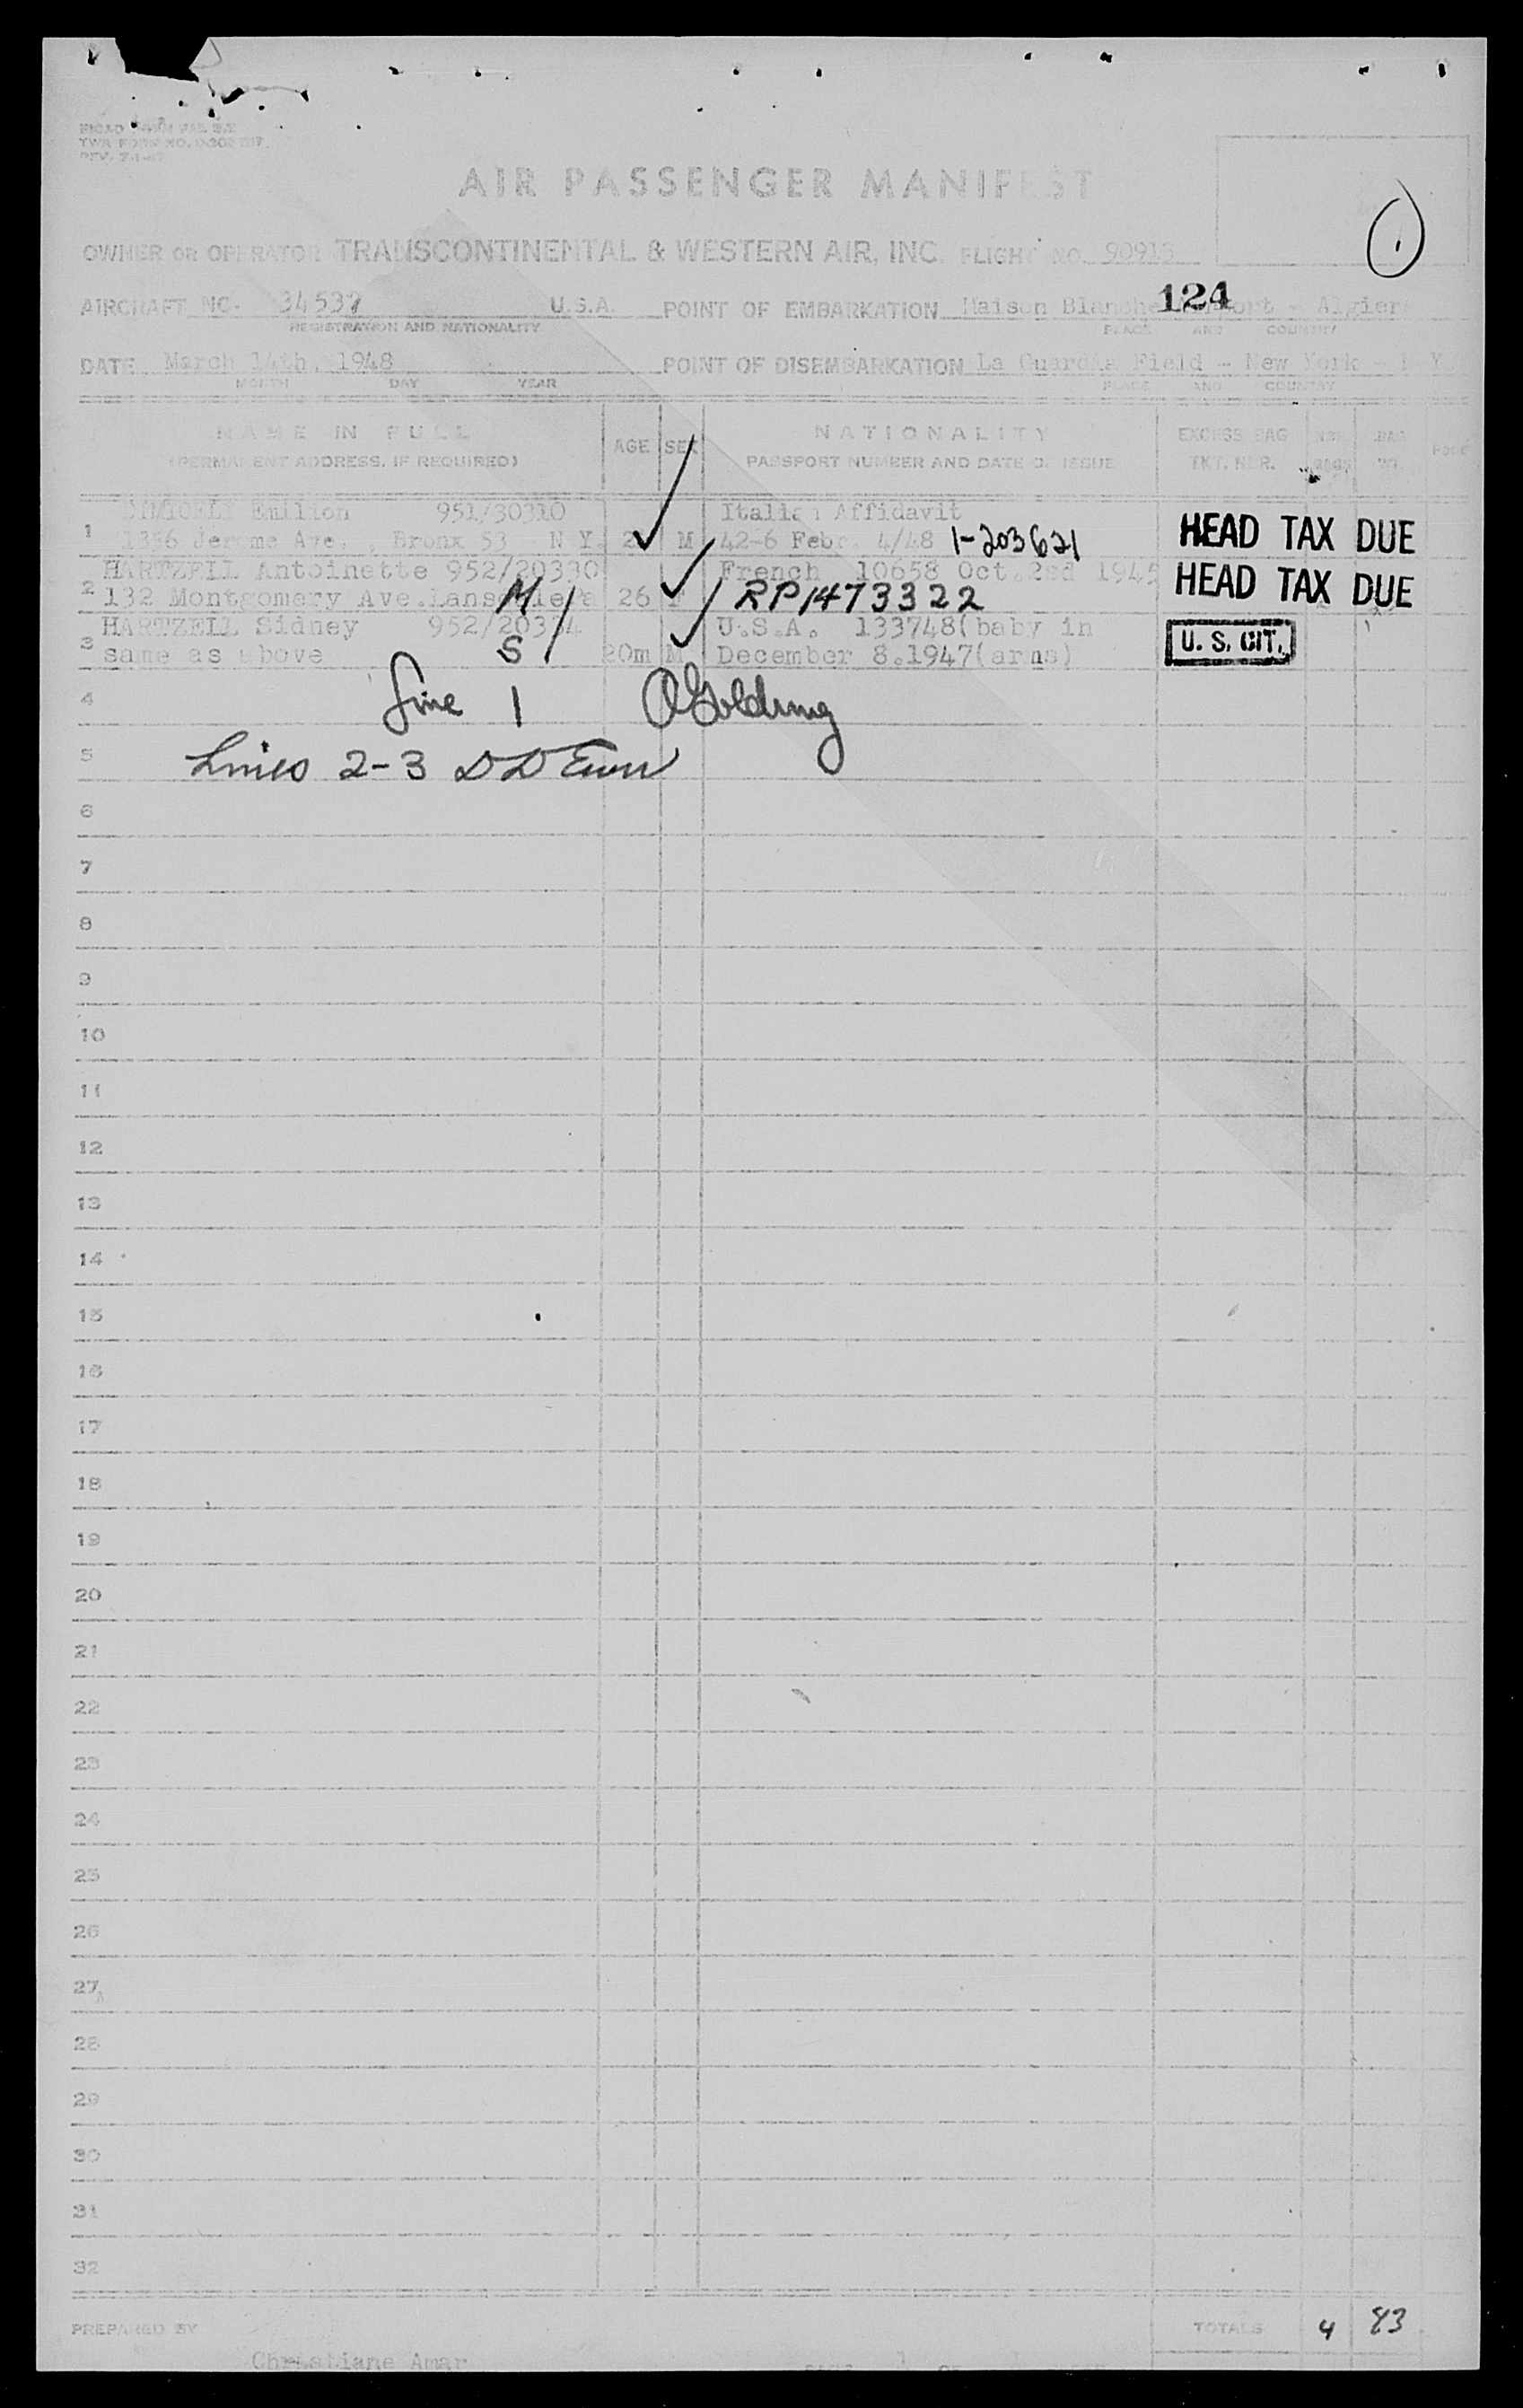 AIR PASSENGER MANIFEST
OWNER OR OPERATOR TRANSCONTINENTAL & WESTERN AIR, INC. FLIGHT NO.
AIRCRAFT NC- 34537 U.S.A. POINT OF EMBARKATION Maison Blanche 124
REGISTRATION AND NATIONALITY PLACE AND COUNTRY
DATE March 14th. 1948 POINT OF DISEMBARKATION La Guardia Field - New York - N Y
MONTH DAY YEAR PLACE AND COUNTRY
NAME IN FULL AGE SEX NATIONALITY EXCESS BAG
(PERMANENT ADDRESS, IF REQUIRED) PASSPORT NUMBER AND DATE OF ISSUE TKT. NBR.
Emilion 951/30310 Italian Affidavit
1 Jerome Ave., Bronx 53 N Y. M 42-6 Febr. 4/48 1-203621 HEAD TAX DUE
HARTZELL Antoinette 952/20330 French 10658 Oct. 1945
2 132 Montgomery Ave. M 26 RP1473322 HEAD TAX DUE
HARTZELL Sidney U.S.A. 133748(baby in
3 same as above S 20m M December 8.1947(arms) U. S. CIT.
4 Line 1 OGolding
5 Lines 2-3
6
7
8
9
10
11
12
13
14
15
16
17
18
19
20
21
22
23
24
25
26
27
28
29
30
31
32
PREPARED BY TOTALS 4 83
Christiane Amar